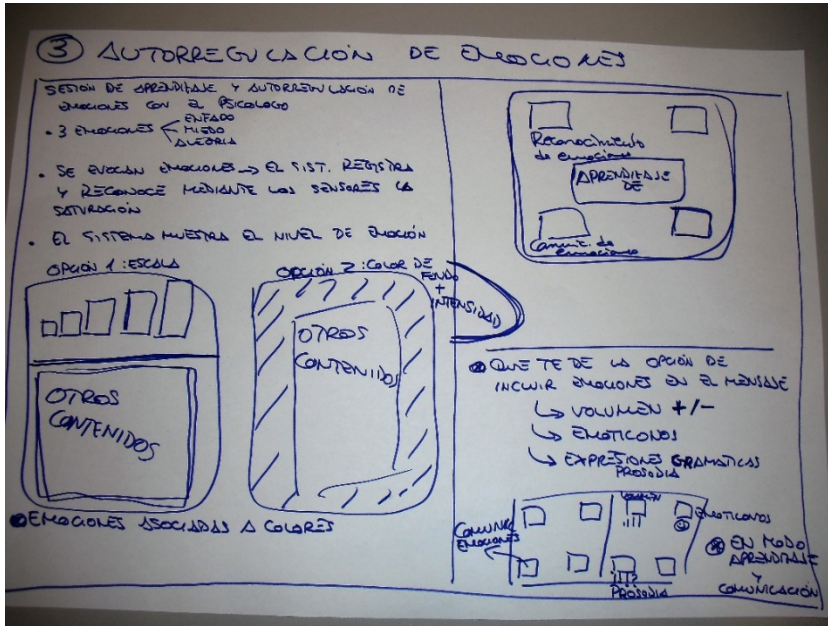 3 AUTORREGULACIÓN DE EMOCIONES
SESIÓN DE APRENDIZAJE Y AUTORREGULACIÓN DE
EMOCIONES CON EL PSICOLOGO
• 3 EMOCIONES
ENFADO
MIEDO
ALEGRIA
• SE EVOCAN EMOCIONES → EL SIST. REGISTRA
Y RECONOCE MEDIANTE LOS SENSORES LA
SATURACIÓN
• EL SISTEMA MUESTRA EL NIVEL DE EMOCIÓN
OPCIÓN 1: ESCALA
OTROS
CONTENIDOS
OPCIÓN 2: COLOR DE
FONDO
+
INTENSIDAD
OTROS
CONTENIDOS
EMOCIONES ASOCIADAS A COLORES
Reconocimiento
de emociones
APRENDIZAJE
DE
Comunic. de
emociones
QUE TE DE LA OPCIÓN DE
INCLUIR EMOCIONES EN EL MENSAJE
↳ VOLUMEN +/-
↳ EMOTICONOS
↳ EXPRESIONES GRAMATICAS
PROSODIA
COMUNIC
EMOCIONES
EMOTICONOS
PROSODIA
EN MODO
APRENDIZAJE
Y
COMUNICACIÓN